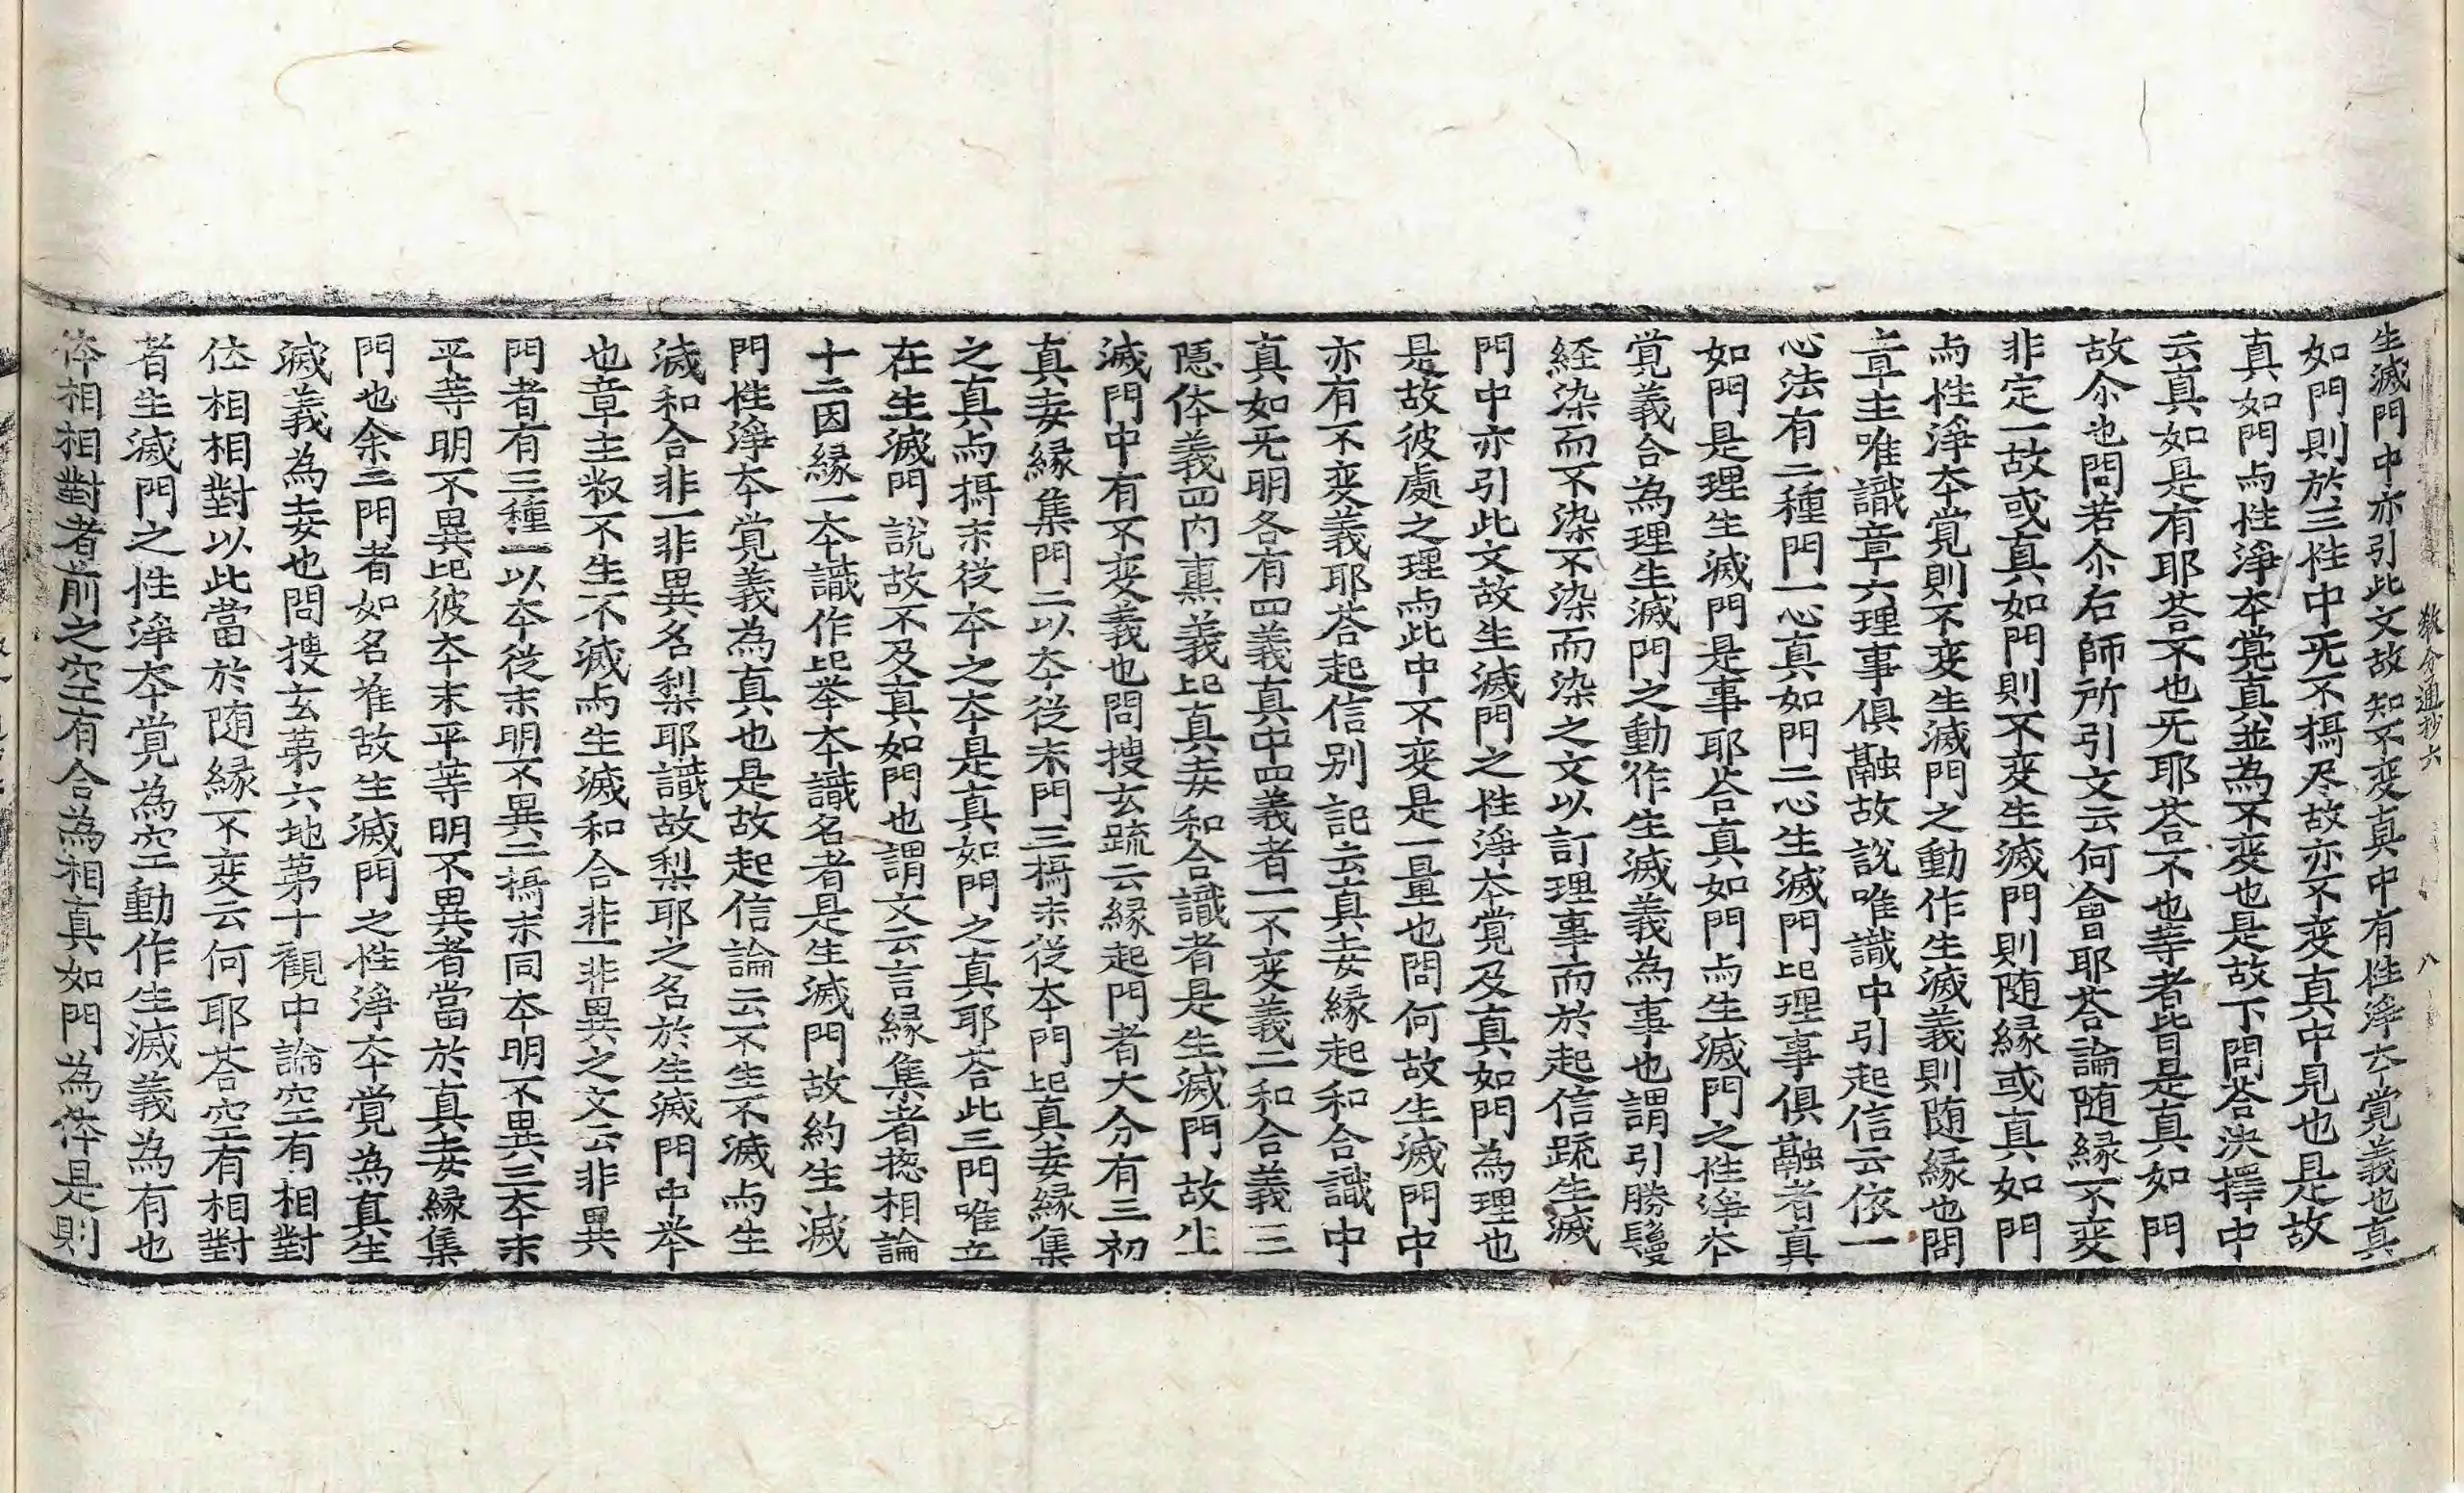 教分通抄六 八
生滅門中亦引此文故知不変真中有性淨夲覺義也真
如門則於三性中旡不攝尽故亦不変真中見也是故
真如門与性淨夲覺真並為不変也是故下問荅決擇中
云真如是有耶荅不也旡耶荅不也等者皆是真如門
故尒也問若尒右師所引文云何會耶荅論随縁不変
非定一故或真如門則不変生滅門則随縁或真如門
与性淨夲覺則不変生滅門之動作生滅義則随縁也問
章主唯識章六理事俱融故說唯識中引起信云依一
心法有二種門一心真如門二心生滅門此理事俱融者真
如門是理生滅門是事耶荅真如門与生滅門之性淨夲
覺義合為理生滅門之動作生滅義為事也謂引勝鬘
経染而不染不染而染之文以訂理事而於起信䟽生滅
門中亦引此文故生滅門之性淨夲覺及真如門為理也
是故彼處之理与此中不変是一量也問何故生滅門中
亦有不変義耶荅起信别記云真妄縁起和合識中
真如旡明各有四義真中四義者一不变義二和合義三
隠体義四内熏義此真妄和合識者是生滅門故生
滅門中有不变義也問搜玄䟽云縁起門者大分有三初
真妄縁集門二以夲従末門三攝末従夲門此真妄縁集
之真与攝末従夲之夲是真如門之真耶荅此三門唯立
在生滅門說故不及真如門也謂文云言縁集者揔相論
十二因縁一夲識作此举夲識名者是生滅門故約生滅
門性淨夲覺義為真也是故起信論云不生不滅与生
滅和合非一非異名梨耶識故梨耶之名於生滅門中举
也章主叙不生不滅与生滅和合非一非異之文云非異
門者有三種一以夲従末明不異二攝末同夲明不異三夲末
平等明不異此彼夲末平等明不異者當於真妄縁集
門也余二門者如名准故生滅門之性淨夲覺為真生
滅義為妄也問搜玄苐六地苐十觀中論空有相對
体相相對以此當於随縁不変云何耶荅空有相對
者生滅門之性淨夲覺為空動作生滅義為有也
体相相對者前之空有合為相真如門為体是則